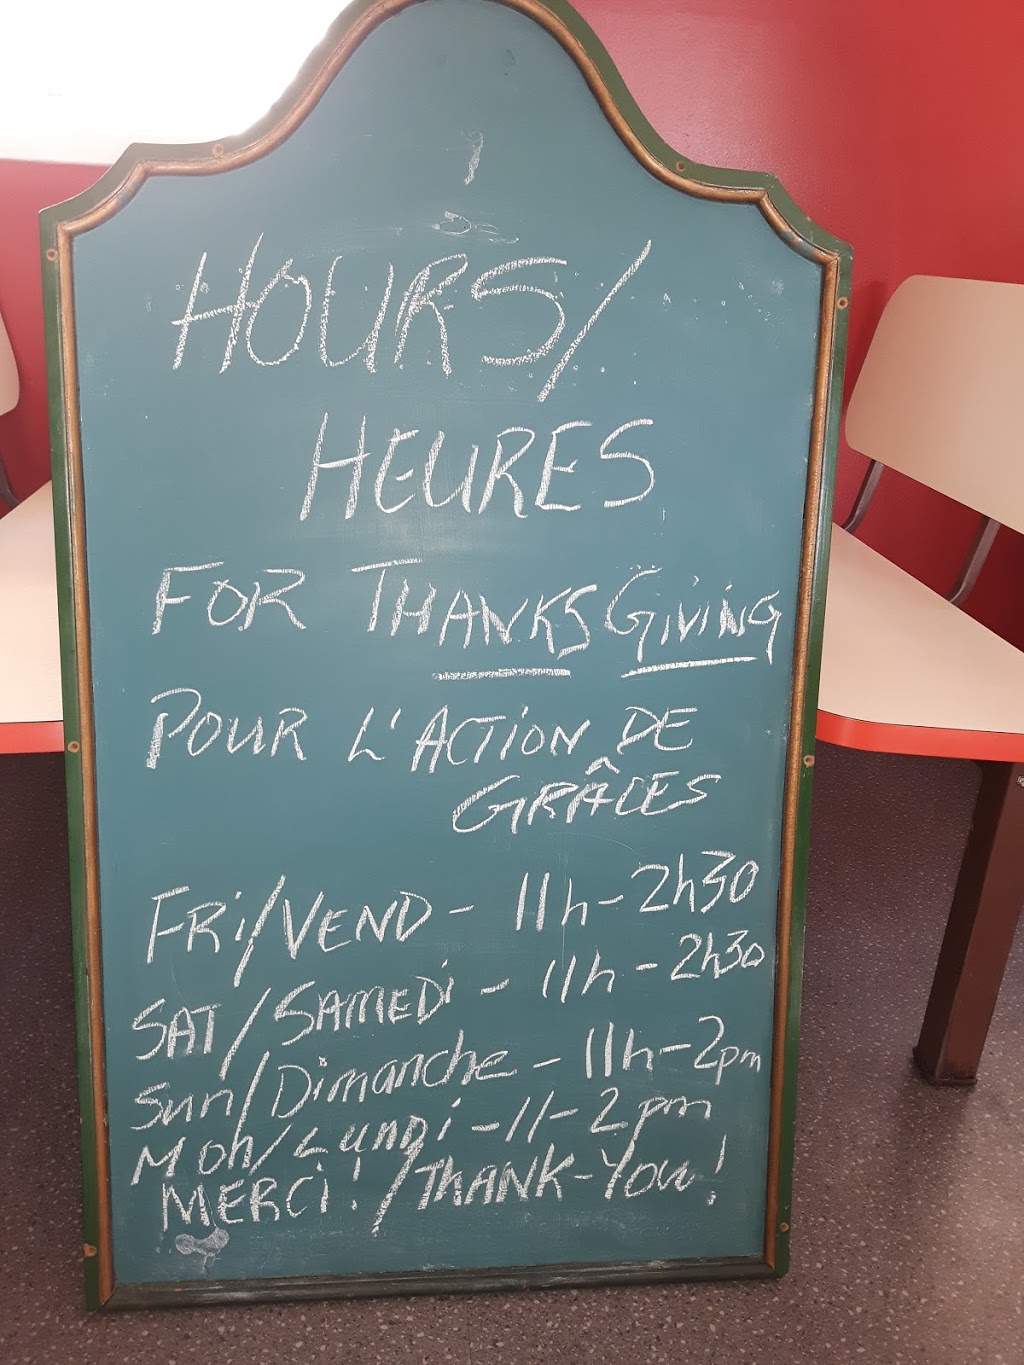 HOURS/
HEURES
FOR THANKSGIVING
POUR L'ACTION DE
GRÂCES
FRI/VEND - 11h - 2h30
SAT/SAMEDI - 11h - 2h30
Sun/Dimanche - 11h - 2pm
Mon/Lundi - 11 - 2pm
MERCI!/THANK-YOU!